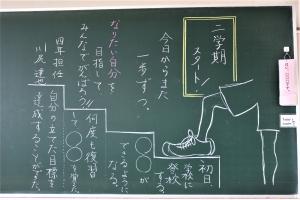 二学期
スタート!
今日からまた
一歩ずつ、
なりたい自分を
目指して
みんなでがんばろう!!
四年担任
初日、
学校に
登校する。
〇〇が
できるように
なる。
何度も復習
して
〇〇を覚えた。
自分の立てた目標を
達成することができた。